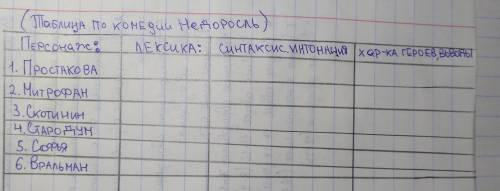 (Таблица по комедии Недоросль)
Персонаж: Лексика: синтаксис, интонация хар-ка героев, выводы
1. Простакова
2. Митрофан
3. Скотинин
4. Стародум
5. Софья
6. Вральман